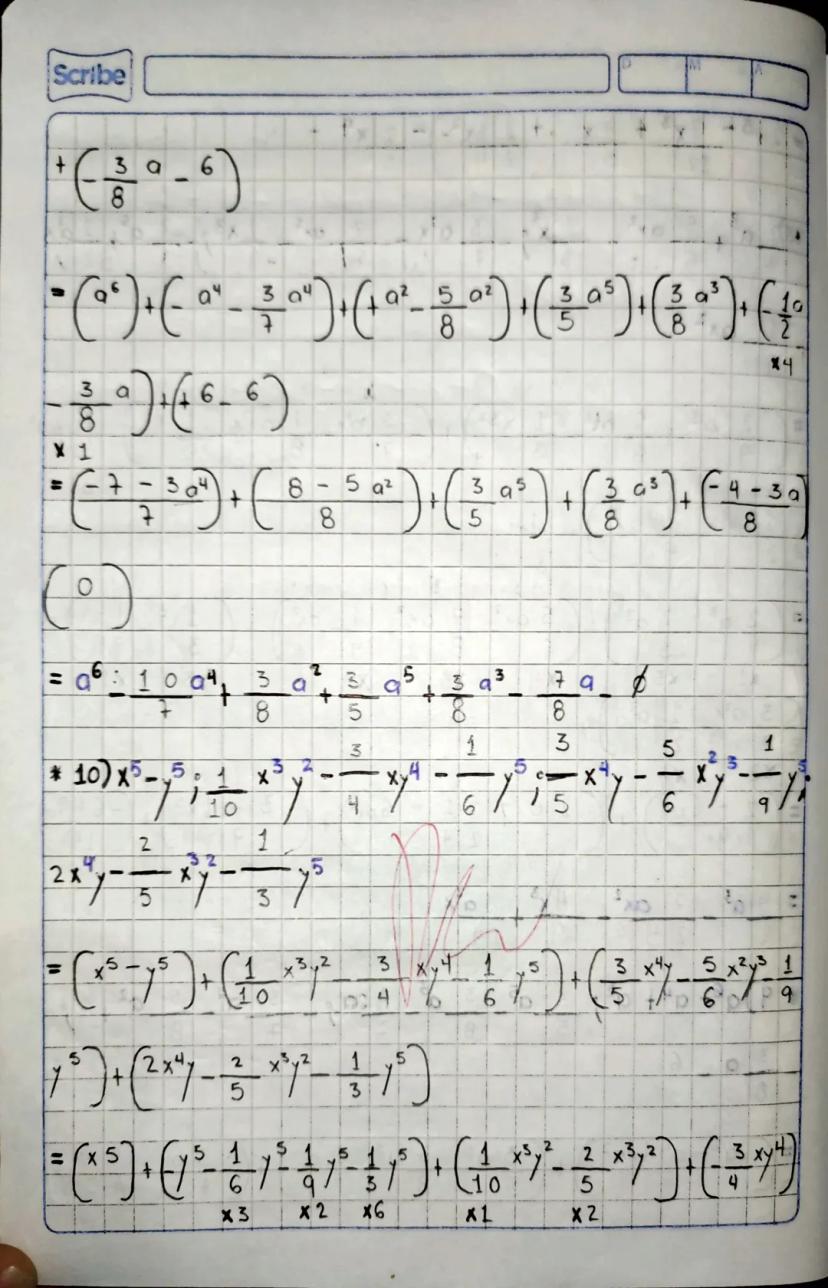 Scribe D M A
+ (- 3/8 a - 6)
= (a⁶) + (- a⁴ - 3/7 a⁴) + (+ a² - 5/8 a²) + (3/5 a⁵) + (3/8 a³) + (- 1/2 a
x4
- 3/8 a) + (+ 6 - 6)
x 1
= (-7 - 3a⁴/7) + (8 - 5a²/8) + (3/5 a⁵) + (3/8 a³) + (-4 - 3a/8)
(0)
= a⁶ - 10/7 a⁴ + 3/8 a² + 3/5 a⁵ + 3/8 a³ - 7/8 a - ∅
* 10) x⁵ - y⁵ ; 1/10 x³y² - 3/4 xy⁴ - 1/6 y⁵ ; 3/5 x⁴y - 5/6 x²y³ - 1/9 y⁵ ;
2x⁴y - 2/5 x³y² - 1/3 y⁵
= (x⁵ - y⁵) + (1/10 x³y² - 3/4 xy⁴ - 1/6 y⁵) + (3/5 x⁴y - 5/6 x²y³ - 1/9
y⁵) + (2x⁴y - 2/5 x³y² - 1/3 y⁵)
= (x5) + (-y⁵ - 1/6 y⁵ - 1/9 y⁵ - 1/3 y⁵) + (1/10 x³y² - 2/5 x³y²) + (- 3/4 xy⁴)
x3 x2 x6 x1 x2